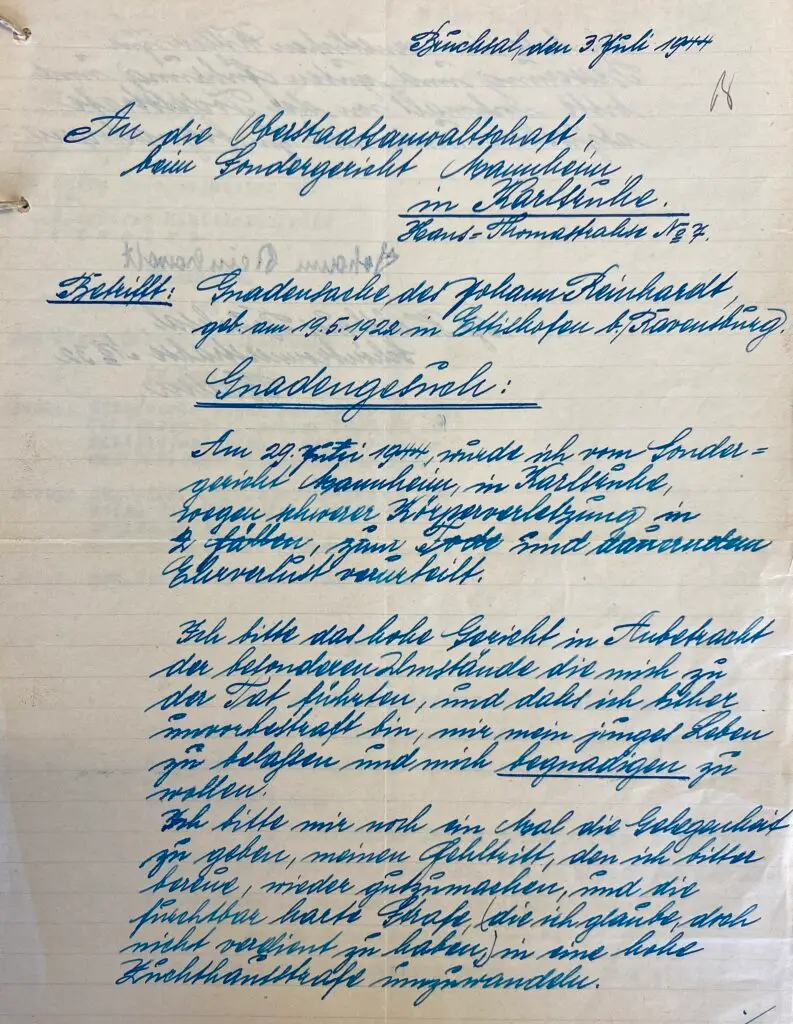 Bruchsal, den 3. Juli 1944
18
An die Oberstaatsanwaltschaft,
beim Sondergericht Mannheim,
in Karlsruhe.
Hans=Thomastrahse No 7.
Betrifft: Gnadensache, des Johann Reinhardt,
geb. am 19.5.1922 in Ettishofen b./Ravensburg.
Gnadengesuch:
Am 29. Juni 1944, wurde ich vom Sonder=
gericht Mannheim, in Karlsruhe,
wegen schwerer Körperverletzung in
2 Fällen, zum Tode und dauerndem
Ehrverlust verurteilt.
Ich bitte das hohe Gericht in Anbetracht
der besonderen Umstände die mich zu
der Tat führten, und dahs ich bisher
unvorbestraft bin, mir mein junges Leben
zu belassen und mich begnadigen zu
wollen.
Ich bitte mir noch ein Mal die Gelegenheit
zu geben, meinen Fehltritt, den ich bitter
bereue, wieder gutzumachen, und die
furchtbar harte Strafe, (die ich glaube, doch
nicht verdient zu haben,) in eine hohe
Zuchthausstrafe umzuwandeln.